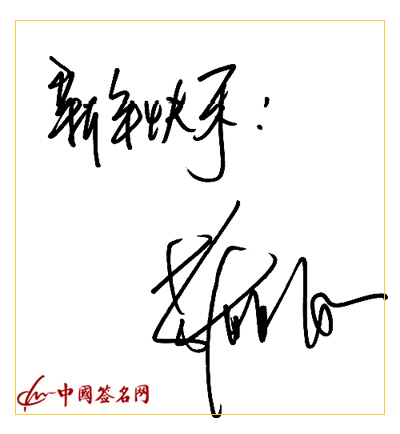 新年快乐！
中國签名网